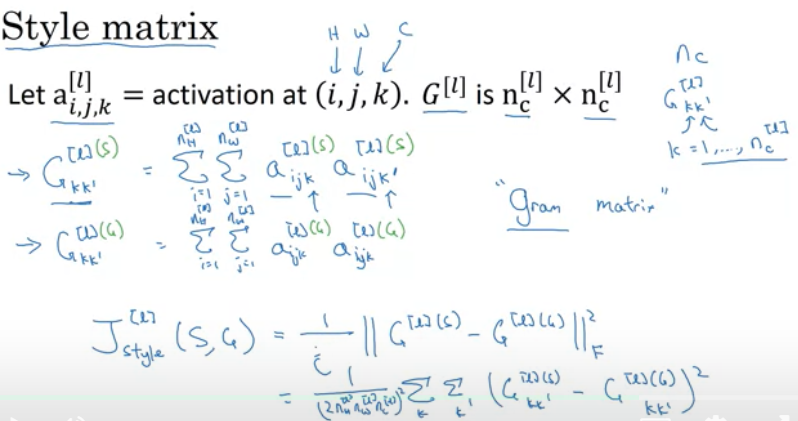 Style matrix
H W C
↓ ↓ ↙
n_c
Let a^{[l]}_{i,j,k} = activation at (i, j, k). G^{[l]} is n_c^{[l]} × n_c^{[l]}
G^{[l]}_{kk'}
k = 1, ..., n_c^{[l]}
→ G^{[l](S)}_{kk'} = Σ_{i=1}^{n_H^{[l]}} Σ_{j=1}^{n_W^{[l]}} a^{[l](S)}_{ijk} a^{[l](S)}_{ijk'}
"Gram matrix"
→ G^{[l](G)}_{kk'} = Σ_{i=1}^{n_H^{[l]}} Σ_{j=1}^{n_W^{[l]}} a^{[l](G)}_{ijk} a^{[l](G)}_{ijk}
J^{[l]}_{style} (S, G) = 1/(...) || G^{[l](S)} - G^{[l](G)} ||^2_F
= 1/(2n_H^{[l]} n_W^{[l]} n_c^{[l]})^2 Σ_k Σ_{k'} (G^{[l](S)}_{kk'} - G^{[l](G)}_{kk'})^2